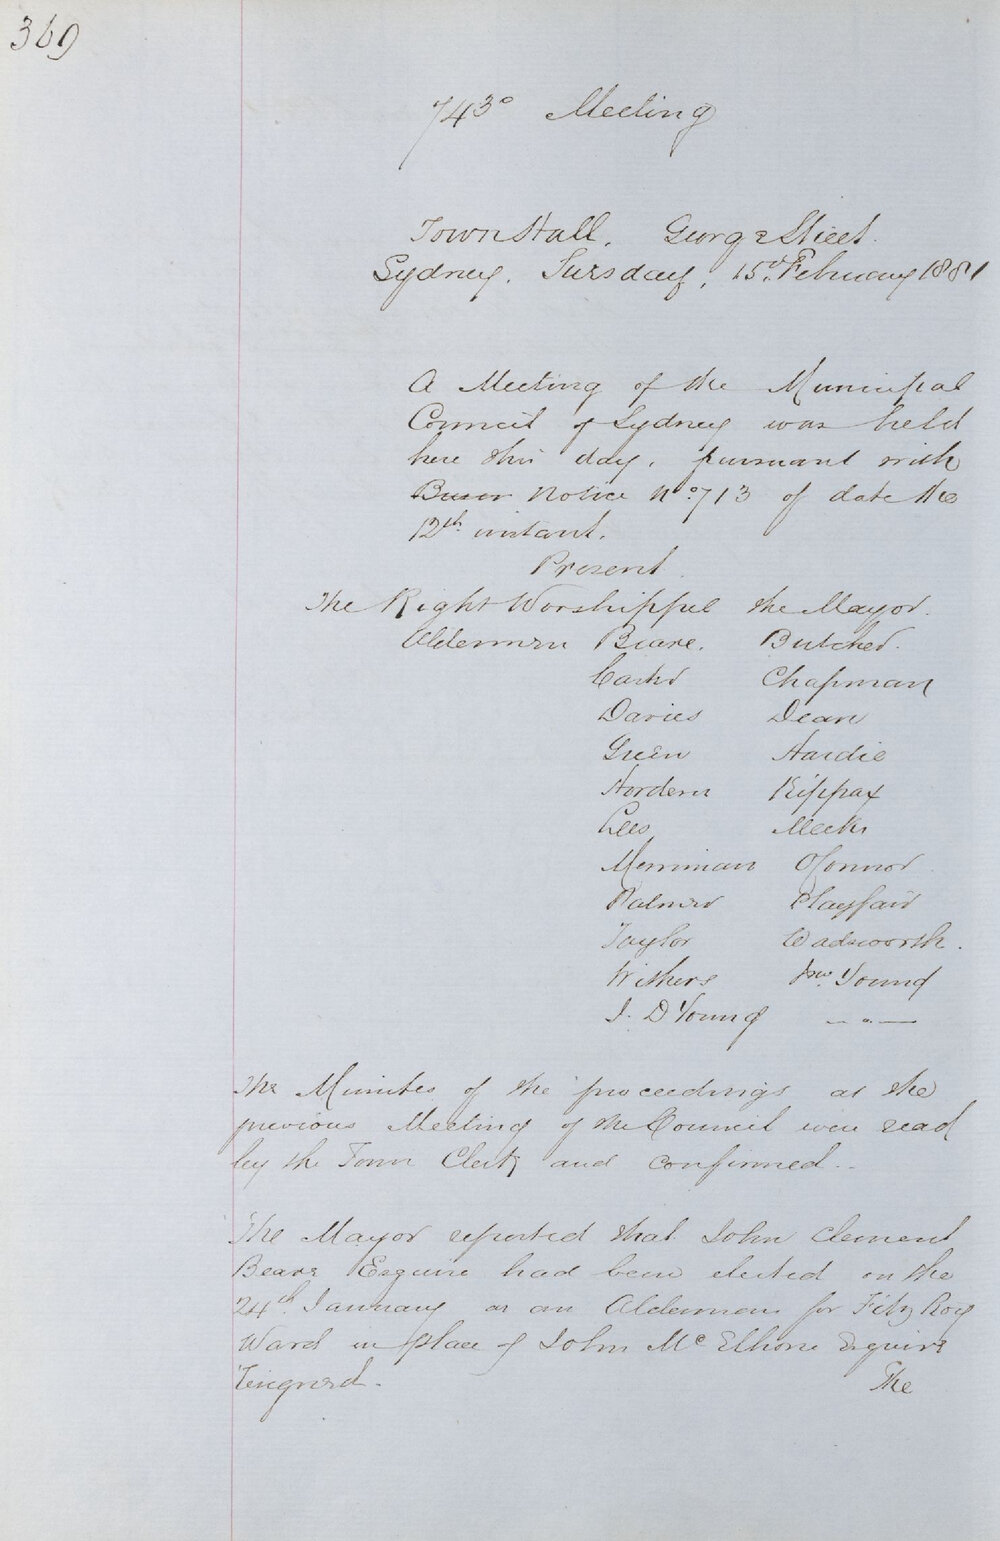 369
743° Meeting
Town Hall, George Street.
Sydney, Tuesday, 15th February 1881
A Meeting of the Municipal
Council of Sydney was held
here this day, pursuant with
Notice No. 713 of date the
12th instant.
Present
The Right Worshipful the Mayor.
Aldermen Beare. Butcher.
Carter Chapman
Davies Dean
Green Hardie
Hordern Kippax
Lees Meeks
Merriman O'Connor
Palmer Playfair
Taylor Wadsworth.
Withers Jno. Young
J. D Young — " —
The Minutes of the proceedings at the
previous Meeting of the Council were read
by the Town Clerk and confirmed.
The Mayor reported that John Clement
Beare Esquire had been elected on the
24th January as an Alderman for Fitz Roy
Ward in place of John McElhone Esquire
resigned.
The